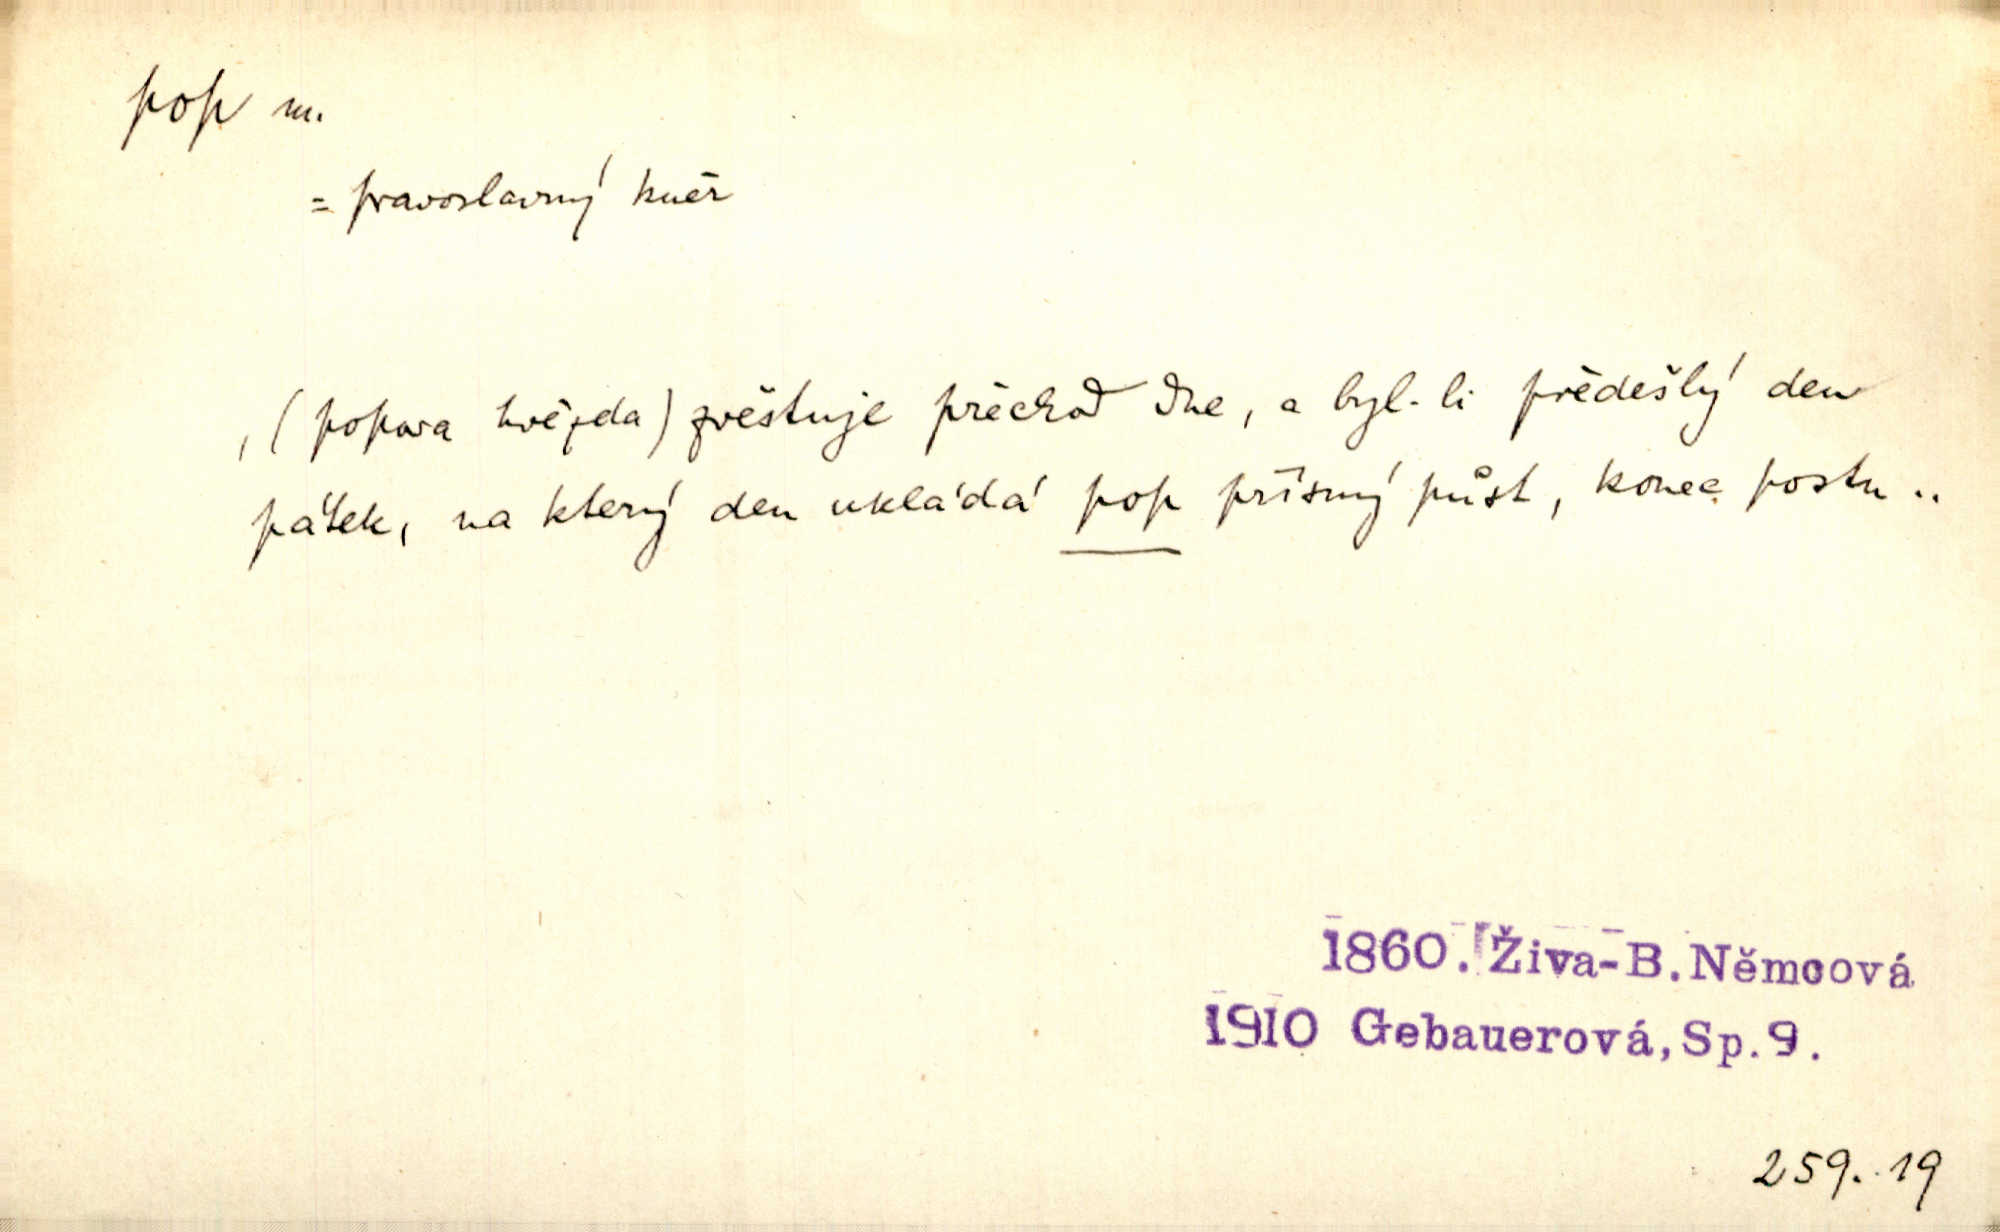 pop m.
= pravoslavný kněz
, (popova hvězda) zvěstuje příchod dne, a byl-li předešlý den
pátek, na který den ukládá pop přísný půst, konec postu ..
1860. Živa-B. Němcová
1910 Gebauerová, Sp. 9.
259. 19